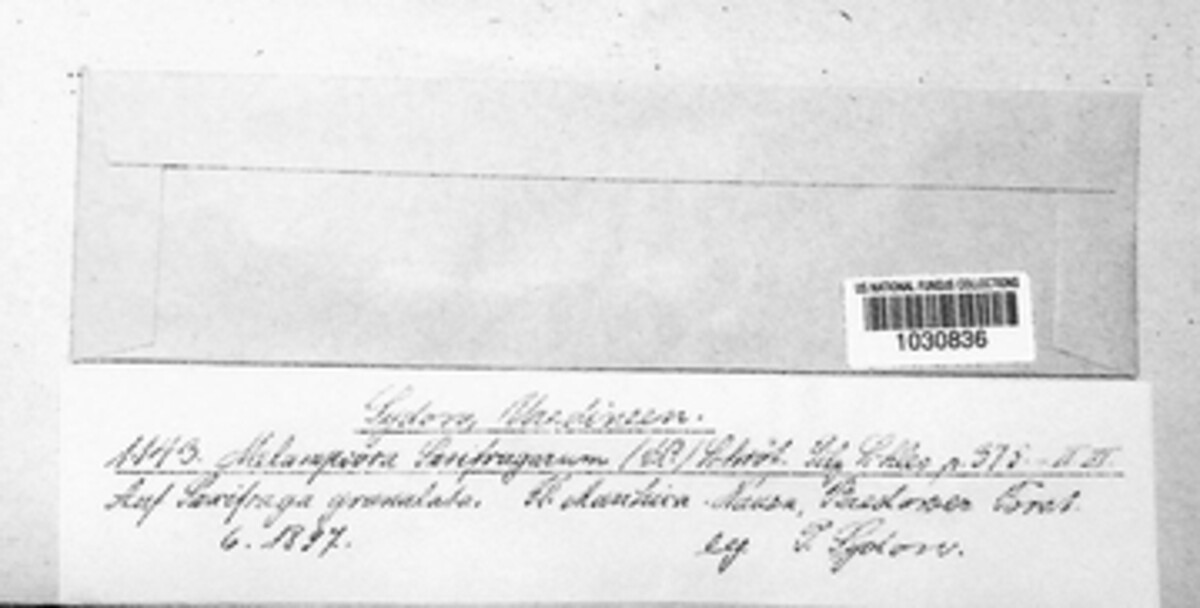 US NATIONAL FUNGUS COLLECTIONS
1030836
Sydow, Uredineen.
1143. Melampsora Saxifragarum (DC) Schröt. p. 375 - II III
Auf Saxifraga granulata. Nauen, Forst.
6. 1897.
leg P. Sydow.